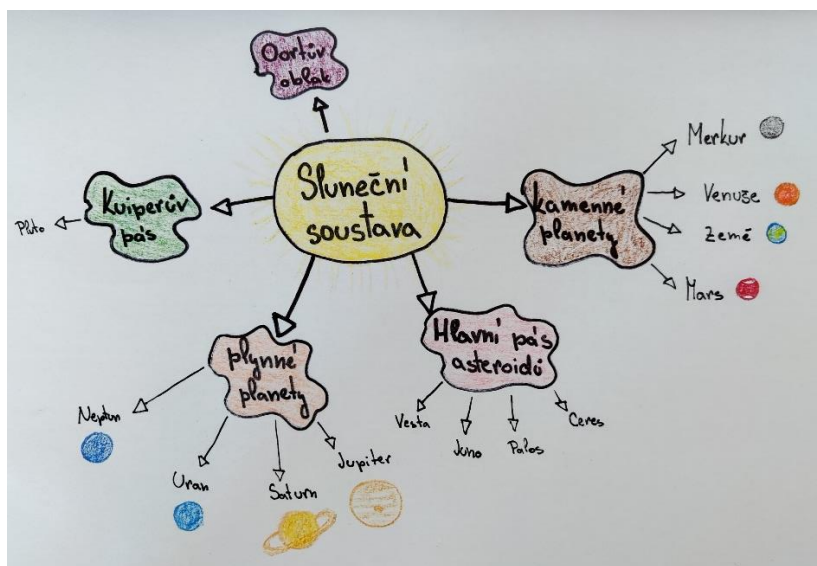 Oortův
oblak
Sluneční
soustava
Kuiperův
pás
Pluto
kamenné
planety
Merkur
Venuše
Země
Mars
Hlavní pás
asteroidů
Vesta
Juno
Palos
Ceres
plynné
planety
Neptun
Uran
Saturn
Jupiter